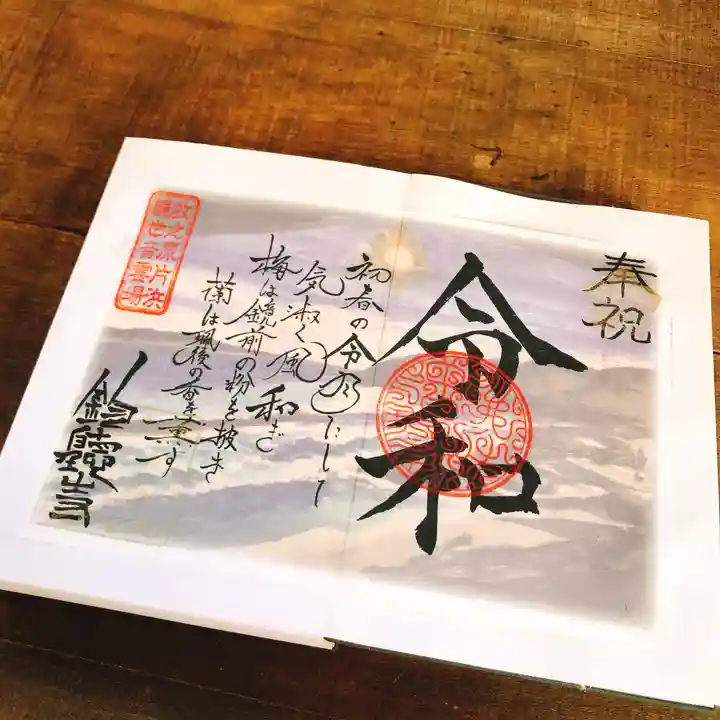 奉祝
令和
初春の令月にして
気淑く風和ぎ
梅は鏡前の粉を披き
蘭は珮後の香を薫す